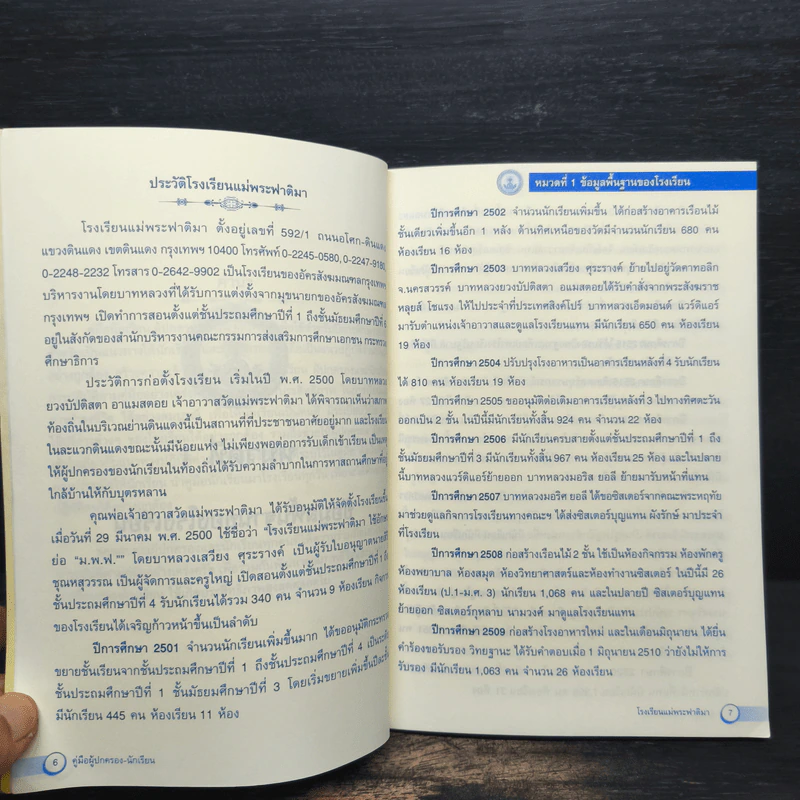 ประวัติโรงเรียนแม่พระฟาติมา
โรงเรียนแม่พระฟาติมา ตั้งอยู่เลขที่ 592/1 ถนนอโศก-ดินแดง
แขวงดินแดง เขตดินแดง กรุงเทพฯ 10400 โทรศัพท์ 0-2245-0580, 0-2247-9180,
0-2248-2232 โทรสาร 0-2642-9902 เป็นโรงเรียนของอัครสังฆมณฑลกรุงเทพฯ
บริหารงานโดยบาทหลวงที่ได้รับการแต่งตั้งจากมุขนายกของอัครสังฆมณฑล
กรุงเทพฯ เปิดทำการสอนตั้งแต่ชั้นประถมศึกษาปีที่ 1 ถึงชั้นมัธยมศึกษาปีที่ 6
อยู่ในสังกัดของสำนักบริหารงานคณะกรรมการส่งเสริมการศึกษาเอกชน กระทรวง
ศึกษาธิการ
ประวัติการก่อตั้งโรงเรียน เริ่มในปี พ.ศ. 2500 โดยบาทหลวง
ยวงบัปติสตา อาแมสตอย เจ้าอาวาสวัดแม่พระฟาติมา ได้พิจารณาเห็นว่าสภาพ
ท้องถิ่นในบริเวณย่านดินแดงนี้เป็นสถานที่ที่ประชาชนอาศัยอยู่มาก และโรงเรียน
ในละแวกดินแดงขณะนั้นมีน้อยแห่ง ไม่เพียงพอต่อการรับเด็กเข้าเรียน เป็นเหตุ
ให้ผู้ปกครองของนักเรียนในท้องถิ่นได้รับความลำบากในการหาสถานศึกษาที่อยู่
ใกล้บ้านให้กับบุตรหลาน
คุณพ่อเจ้าอาวาสวัดแม่พระฟาติมา ได้รับอนุมัติให้จัดตั้งโรงเรียนขึ้น
เมื่อวันที่ 29 มีนาคม พ.ศ. 2500 ใช้ชื่อว่า "โรงเรียนแม่พระฟาติมา ใช้อักษร
ย่อ "ม.พ.ฟ."" โดยบาหลวงเสวียง ศุระรางค์ เป็นผู้รับใบอนุญาต
ชุณหสุวรรณ เป็นผู้จัดการและครูใหญ่ เปิดสอนตั้งแต่ชั้นประถมศึกษาปีที่ 1 ถึง
ชั้นประถมศึกษาปีที่ 4 รับนักเรียนได้รวม 340 คน จำนวน 9 ห้องเรียน กิจการ
ของโรงเรียนได้เจริญก้าวหน้าขึ้นเป็นลำดับ
ปีการศึกษา 2501 จำนวนนักเรียนเพิ่มขึ้นมาก ได้ขออนุมัติกระทรวง
ขยายชั้นเรียนจากชั้นประถมศึกษาปีที่ 1 ถึงชั้นประถมศึกษาปีที่ 4 เป็น
ชั้นประถมศึกษาปีที่ 1 ชั้นมัธยมศึกษาปีที่ 3 โดยเริ่มขยายเพิ่มขึ้นปีละชั้น
มีนักเรียน 445 คน ห้องเรียน 11 ห้อง
6 คู่มือผู้ปกครอง-นักเรียน
หมวดที่ 1 ข้อมูลพื้นฐานของโรงเรียน
ปีการศึกษา 2502 จำนวนนักเรียนเพิ่มขึ้น ได้ก่อสร้างอาคารเรือนไม้
ชั้นเดียวเพิ่มขึ้นอีก 1 หลัง ด้านทิศเหนือของวัดมีจำนวนนักเรียน 680 คน
ห้องเรียน 16 ห้อง
ปีการศึกษา 2503 บาทหลวงเสวียง ศุระรางค์ ย้ายไปอยู่วัดคาทอลิก
จ.นครสวรรค์ บาทหลวงยวงบัปติสตา อแมสตอยได้รับคำสั่งจากพระสังฆราช
หลุยส์ โชแรง ให้ไปประจำที่ประเทศสิงคโปร์ บาทหลวงเอ็ดมอนด์ แวร์ดิแอร์
มารับตำแหน่งเจ้าอาวาสและดูแลโรงเรียนแทน มีนักเรียน 650 คน ห้องเรียน
19 ห้อง
ปีการศึกษา 2504 ปรับปรุงโรงอาหารเป็นอาคารเรียนหลังที่ 4 รับนักเรียน
ได้ 810 คน ห้องเรียน 19 ห้อง
ปีการศึกษา 2505 ขออนุมัติต่อเติมอาคารเรียนหลังที่ 3 ไปทางทิศตะวัน
ออกเป็น 2 ชั้น ในปีนี้มีนักเรียนทั้งสิ้น 924 คน จำนวน 22 ห้อง
ปีการศึกษา 2506 มีนักเรียนครบสายตั้งแต่ชั้นประถมศึกษาปีที่ 1 ถึง
ชั้นมัธยมศึกษาปีที่ 3 มีนักเรียนทั้งสิ้น 967 คน ห้องเรียน 25 ห้อง และในปลาย
ปีนี้บาทหลวงแวร์ดิแอร์ย้ายออก บาทหลวงมอริส ยอลี ย้ายมารับหน้าที่แทน
ปีการศึกษา 2507 บาทหลวงมอริศ ยอลี ได้ขอซิสเตอร์จากคณะพระหฤทัย
มาช่วยดูแลกิจการโรงเรียนทางคณะฯ ได้ส่งซิสเตอร์บุญแทน ผังรักษ์ มาประจำ
ที่โรงเรียน
ปีการศึกษา 2508 ก่อสร้างเรือนไม้ 2 ชั้น ใช้เป็นห้องกิจกรรม ห้องพักครู
ห้องพยาบาล ห้องสมุด ห้องวิทยาศาสตร์และห้องทำงานซิสเตอร์ ในปีนี้มี 26
ห้องเรียน (ป.1-ม.ศ. 3) นักเรียน 1,068 คน และในปลายปี ซิสเตอร์บุญแทน
ย้ายออก ซิสเตอร์กุหลาบ นามวงค์ มาดูแลโรงเรียนแทน
ปีการศึกษา 2509 ก่อสร้างโรงอาหารใหม่ และในเดือนมิถุนายน ได้ยื่น
คำร้องขอรับรอง วิทยฐานะ ได้รับคำตอบเมื่อ 1 มิถุนายน 2510 ว่ายังไม่ให้การ
รับรอง มีนักเรียน 1,063 คน จำนวน 26 ห้องเรียน
โรงเรียนแม่พระฟาติมา 7